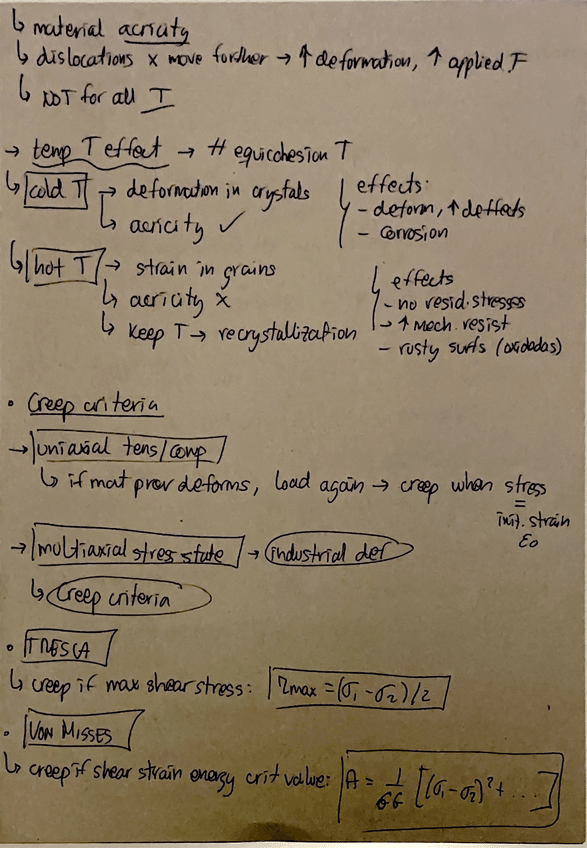 ↳ material acricity
↳ dislocations x move further → ↑ deformation, ↑ applied F
↳ NOT for all T
→ temp T effect → ≠ equicohesion T
↳ cold T → deformation in crystals
↳ acricity ✓
effects:
- deform, ↑ deffects
- corrosion
↳ hot T → strain in grains
↳ acricity x
↳ keep T → recrystallization
effects
- no resid. stresses
→ ↑ mech. resist
- rusty surfs (oxidadas)
• Creep criteria
→ uniaxial tens/comp
↳ if mat prev deforms, load again → creep when stress
=
init. strain
ε0
→ multiaxial stress state → industrial def
↳ Creep criteria
• TRESCA
↳ creep if max shear stress: τmax = (σ1 - σ2)/2
• VON MISSES
↳ creep if shear strain energy crit value: A = 1/6G [(σ1 - σ2)² + ...]